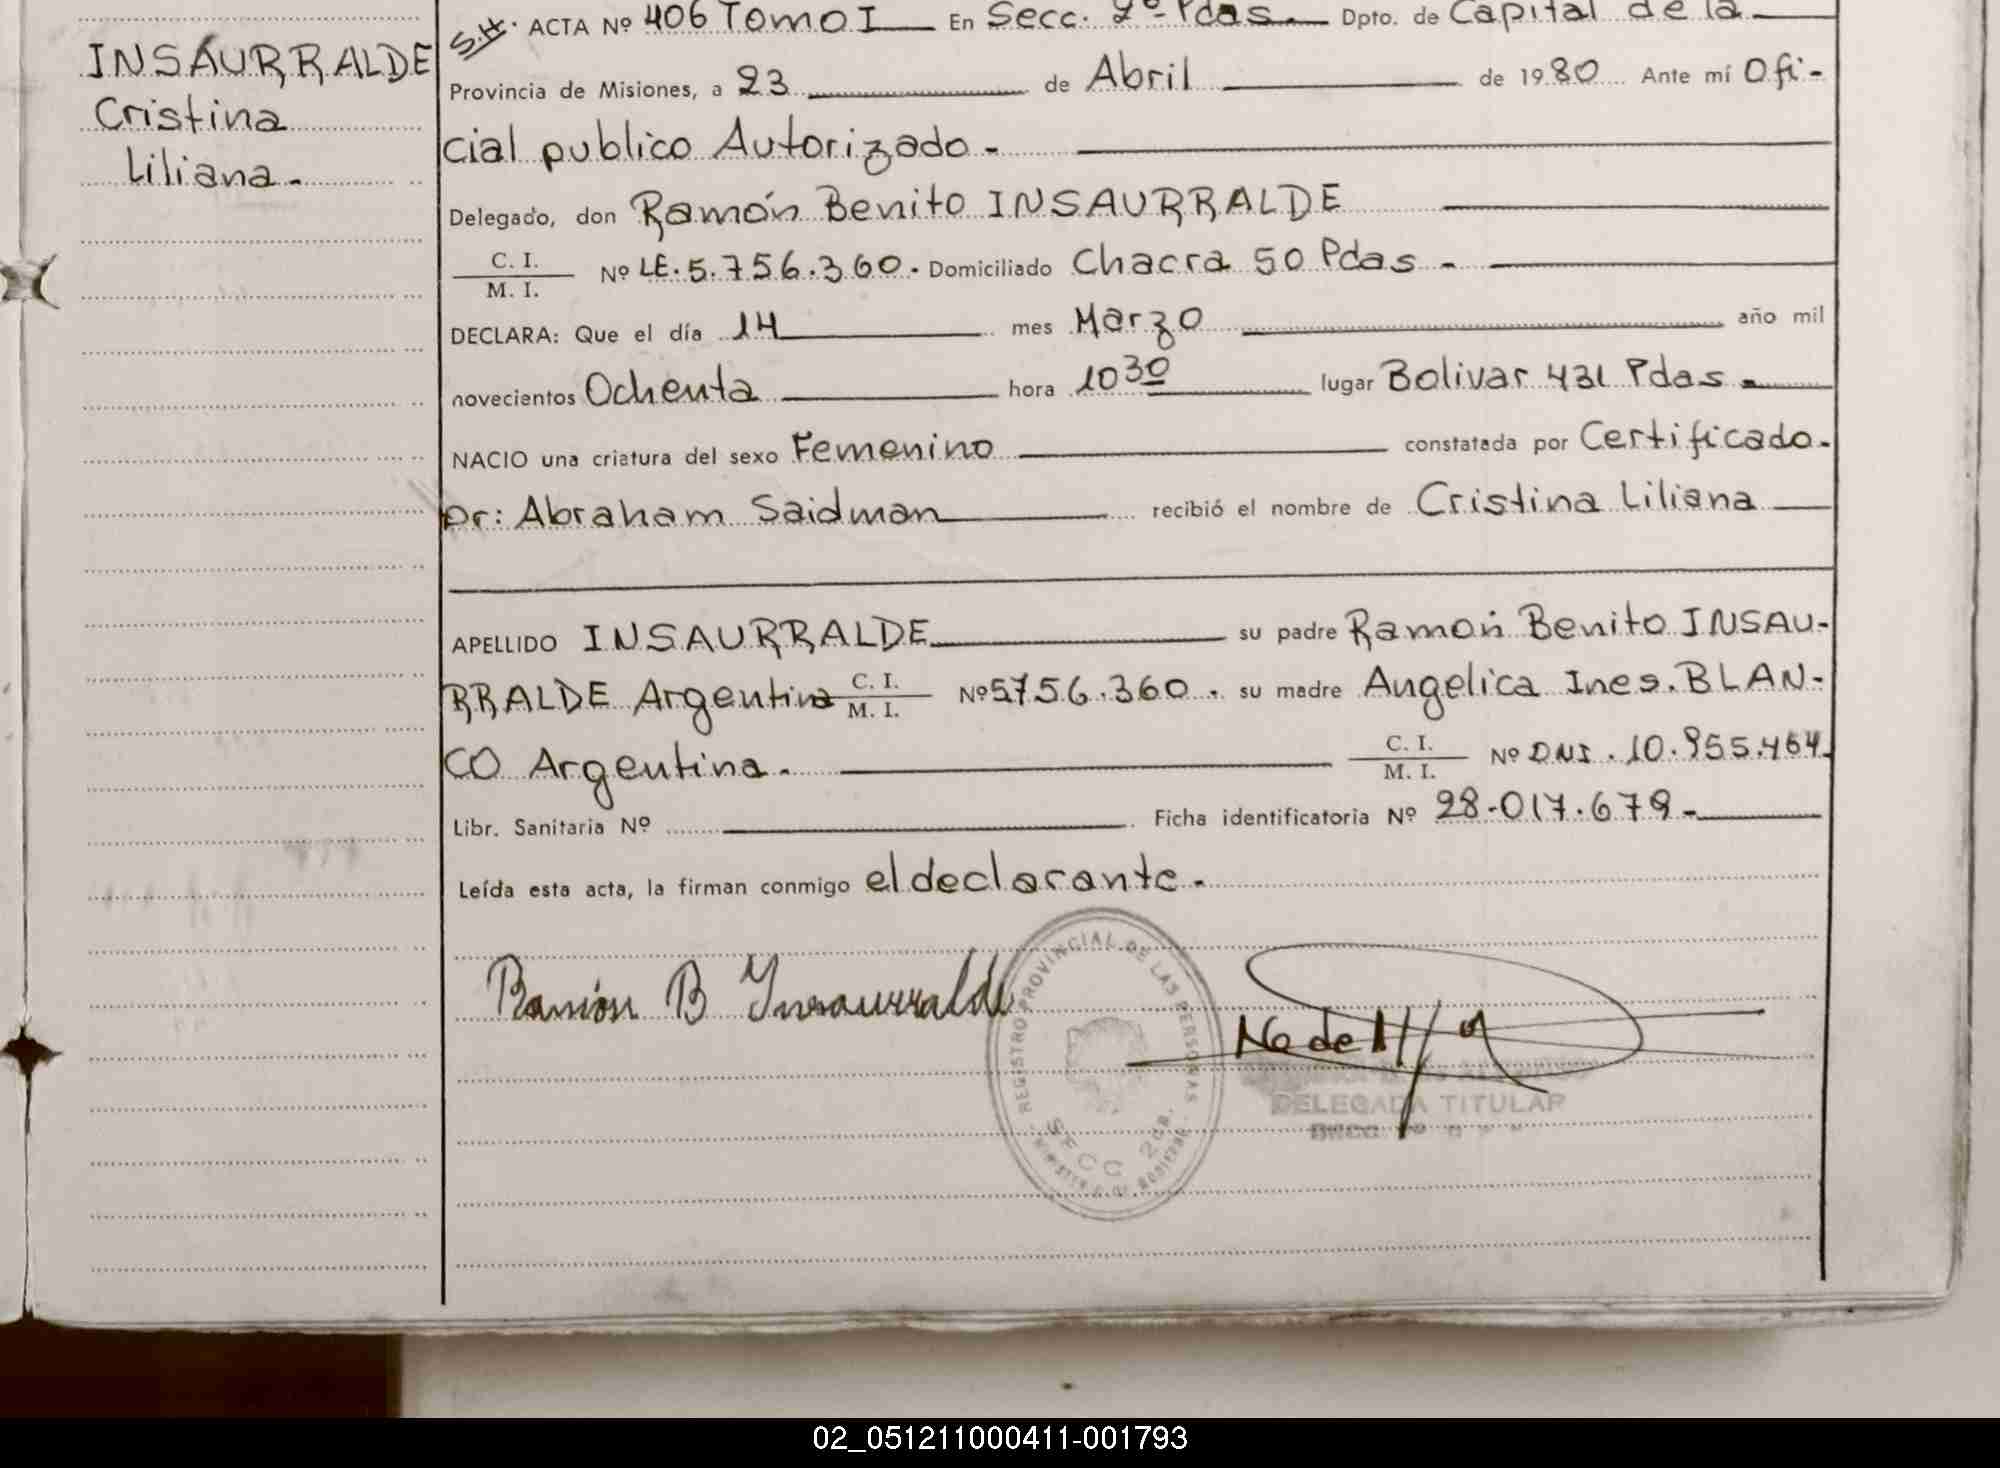 INSAURRALDE
Cristina
Liliana.-
S.H. ACTA Nº 406 Tomo I En Secc. 2º- Pdas.- Dpto. de Capital de la
Provincia de Misiones, a 23 de Abril de 1980 Ante mí Ofi-
cial publico Autorizado -
Delegado, don Ramón Benito INSAURRALDE
C. I.
M. I. Nº LE. 5.756.360. Domiciliado Chacra 50 Pdas -
DECLARA: Que el día 14 mes Marzo año mil
novecientos Ochenta hora 10 30 lugar Bolivar 431 Pdas -
NACIO una criatura del sexo Femenino constatada por Certificado.
Dr: Abraham Saidman recibió el nombre de Cristina Liliana
APELLIDO INSAURRALDE su padre Ramón Benito INSAU-
RRALDE Argentina C. I. M. I. Nº 5756.360. su madre Angelica Ines. BLAN-
CO Argentina. C. I. M. I. Nº DNI. 10.955.464.
Libr. Sanitaria Nº Ficha identificatoria Nº 28.017.679.-
Leída esta acta, la firman conmigo el declarante.
Ramón B Insaurralde
REGISTRO PROVINCIAL DE LAS PERSONAS
SECC 2da.
DELEGADA TITULAR
02_051211000411-001793